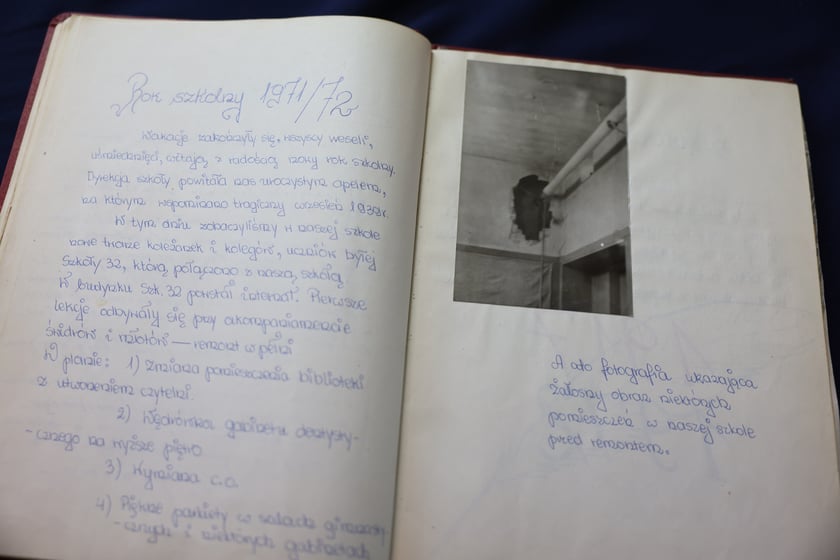 Rok szkolny 1971/72
Wakacje zakończyły się, wszyscy weseli,
uśmiechnięci, witają z radością nowy rok szkolny.
Dyrekcja szkoły powitała nas uroczystym apelem,
na którym wspomniano tragiczny wrzesień 1939r.
W tym dniu zobaczyliśmy w naszej szkole
nowe twarze koleżanek i kolegów, uczniów byłej
Szkoły 32, którą połączono z naszą szkołą
W budynku Szk. 32 powstał internat. Pierwsze
lekcje odbywały się przy akompaniamencie
świdrów i młotów — remont w pełni
W planie: 1) Zmiana pomieszczenia biblioteki
z utworzeniem czytelni.
2) Wędrówka gabinetu dentysty-
-cznego na wyższe piętro
3) Wymiana c.o.
4) Piękne parkiety w salach gimnasty-
-cznych i niektórych gabinetach
A oto fotografia ukazująca
żałosny obraz niektórych
pomieszczeń w naszej szkole
przed remontem.